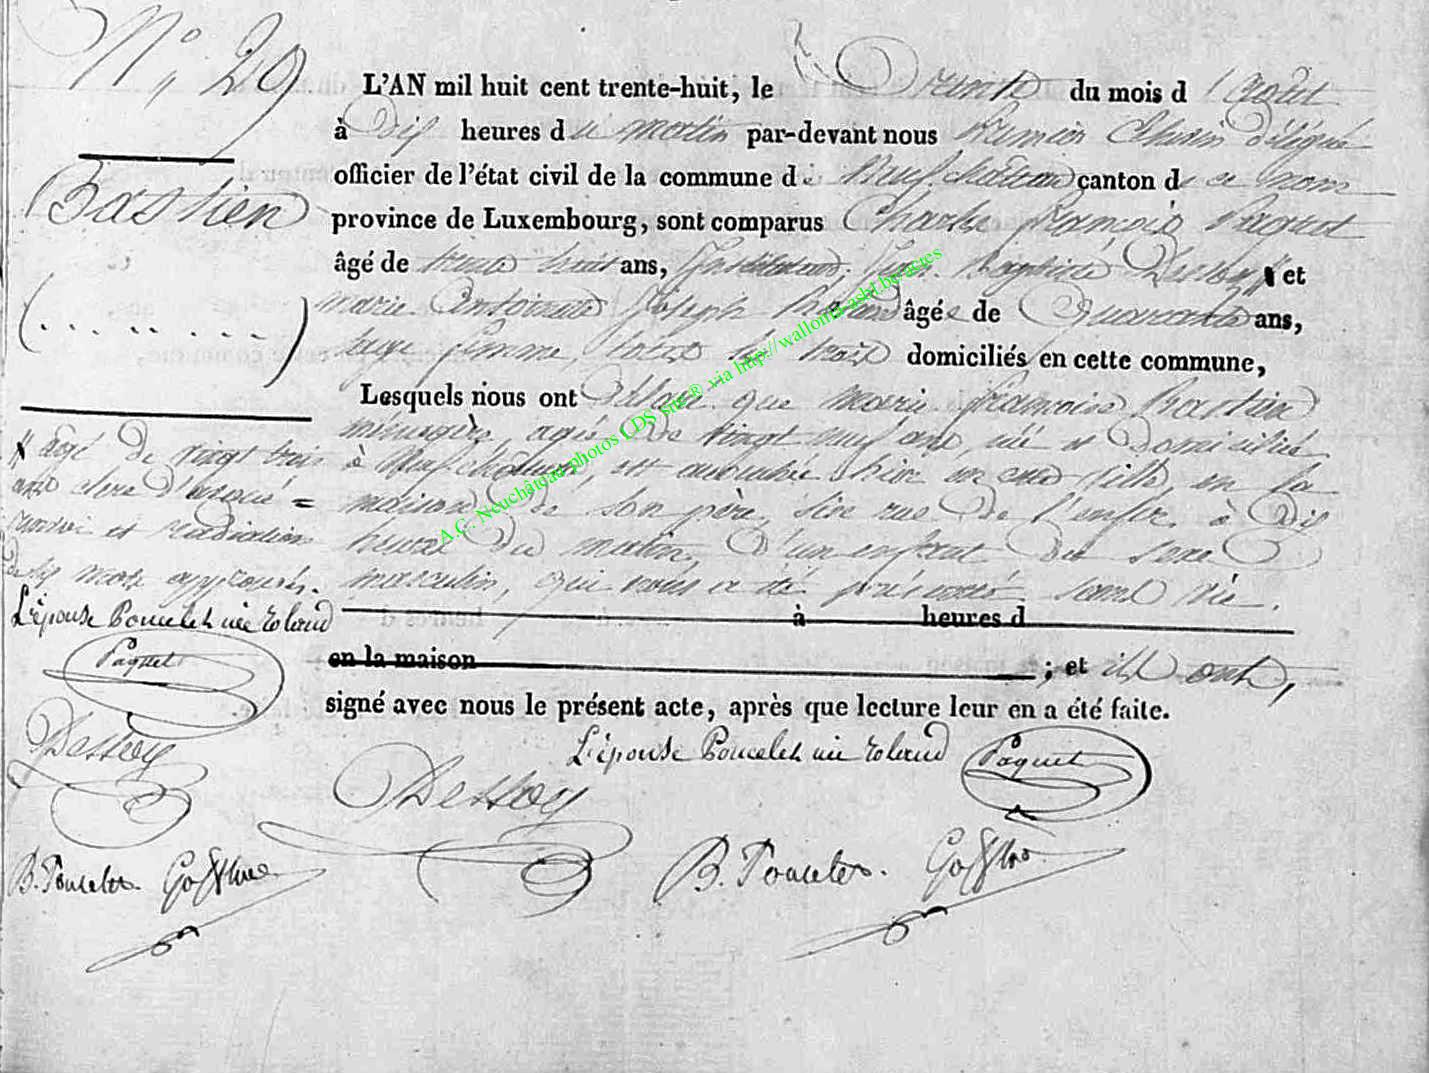 N° 29
Bastien
(. . . . . . . .)
L'AN mil huit cent trente-huit, le Trente du mois d'Août
à Dix heures du matin par-devant nous Echevin délégué
officier de l'état civil de la commune de Neufchâteau canton de ce nom
province de Luxembourg, sont comparus Charles François Paquet
âgé de trente huit ans, Jean Baptiste Dessoy et
marie Antoinette Joseph Roland âgée de Quarante ans,
sage femme, tous les trois domiciliés en cette commune,
Lesquels nous ont déclaré que marie françoise Bastien
ménagère, agée de vingt neuf ans, née et Domiciliée
à Neufchâteau, est accouchée hier en cette ville, en la
maison de son père, sise rue De l'enfer, à Dix
heures Du matin, D'un enfant Du sexe
masculin, qui nous a été présenté sans vie.
à heures d
en la maison ; et ils ont,
signé avec nous le présent acte, après que lecture leur en a été faite.
âgé De vingt trois
ans clerc d'avoué =
renvoi et radiation
de dix mots approuvés.
L'épouse Poncelet née Roland
Paquet
Dessoy
B. Poncelet.
L'épouse Poncelet née Roland
Paquet
Dessoy
B. Poncelet.
A.C. Neuchâteau photos LDS site® via http://wallonia-asbl.be/actes